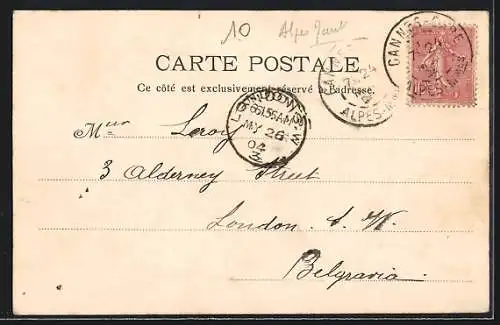 10 Alpes Marit
CARTE POSTALE
Ce côté est exclusivement réservé à l'adresse.
CANNES
24
ALPES-M
LONDON S.W.
6.15 AM
MY 26
04
3
Leroy
3 Alderney Street
London. S. W.
Belgravia.